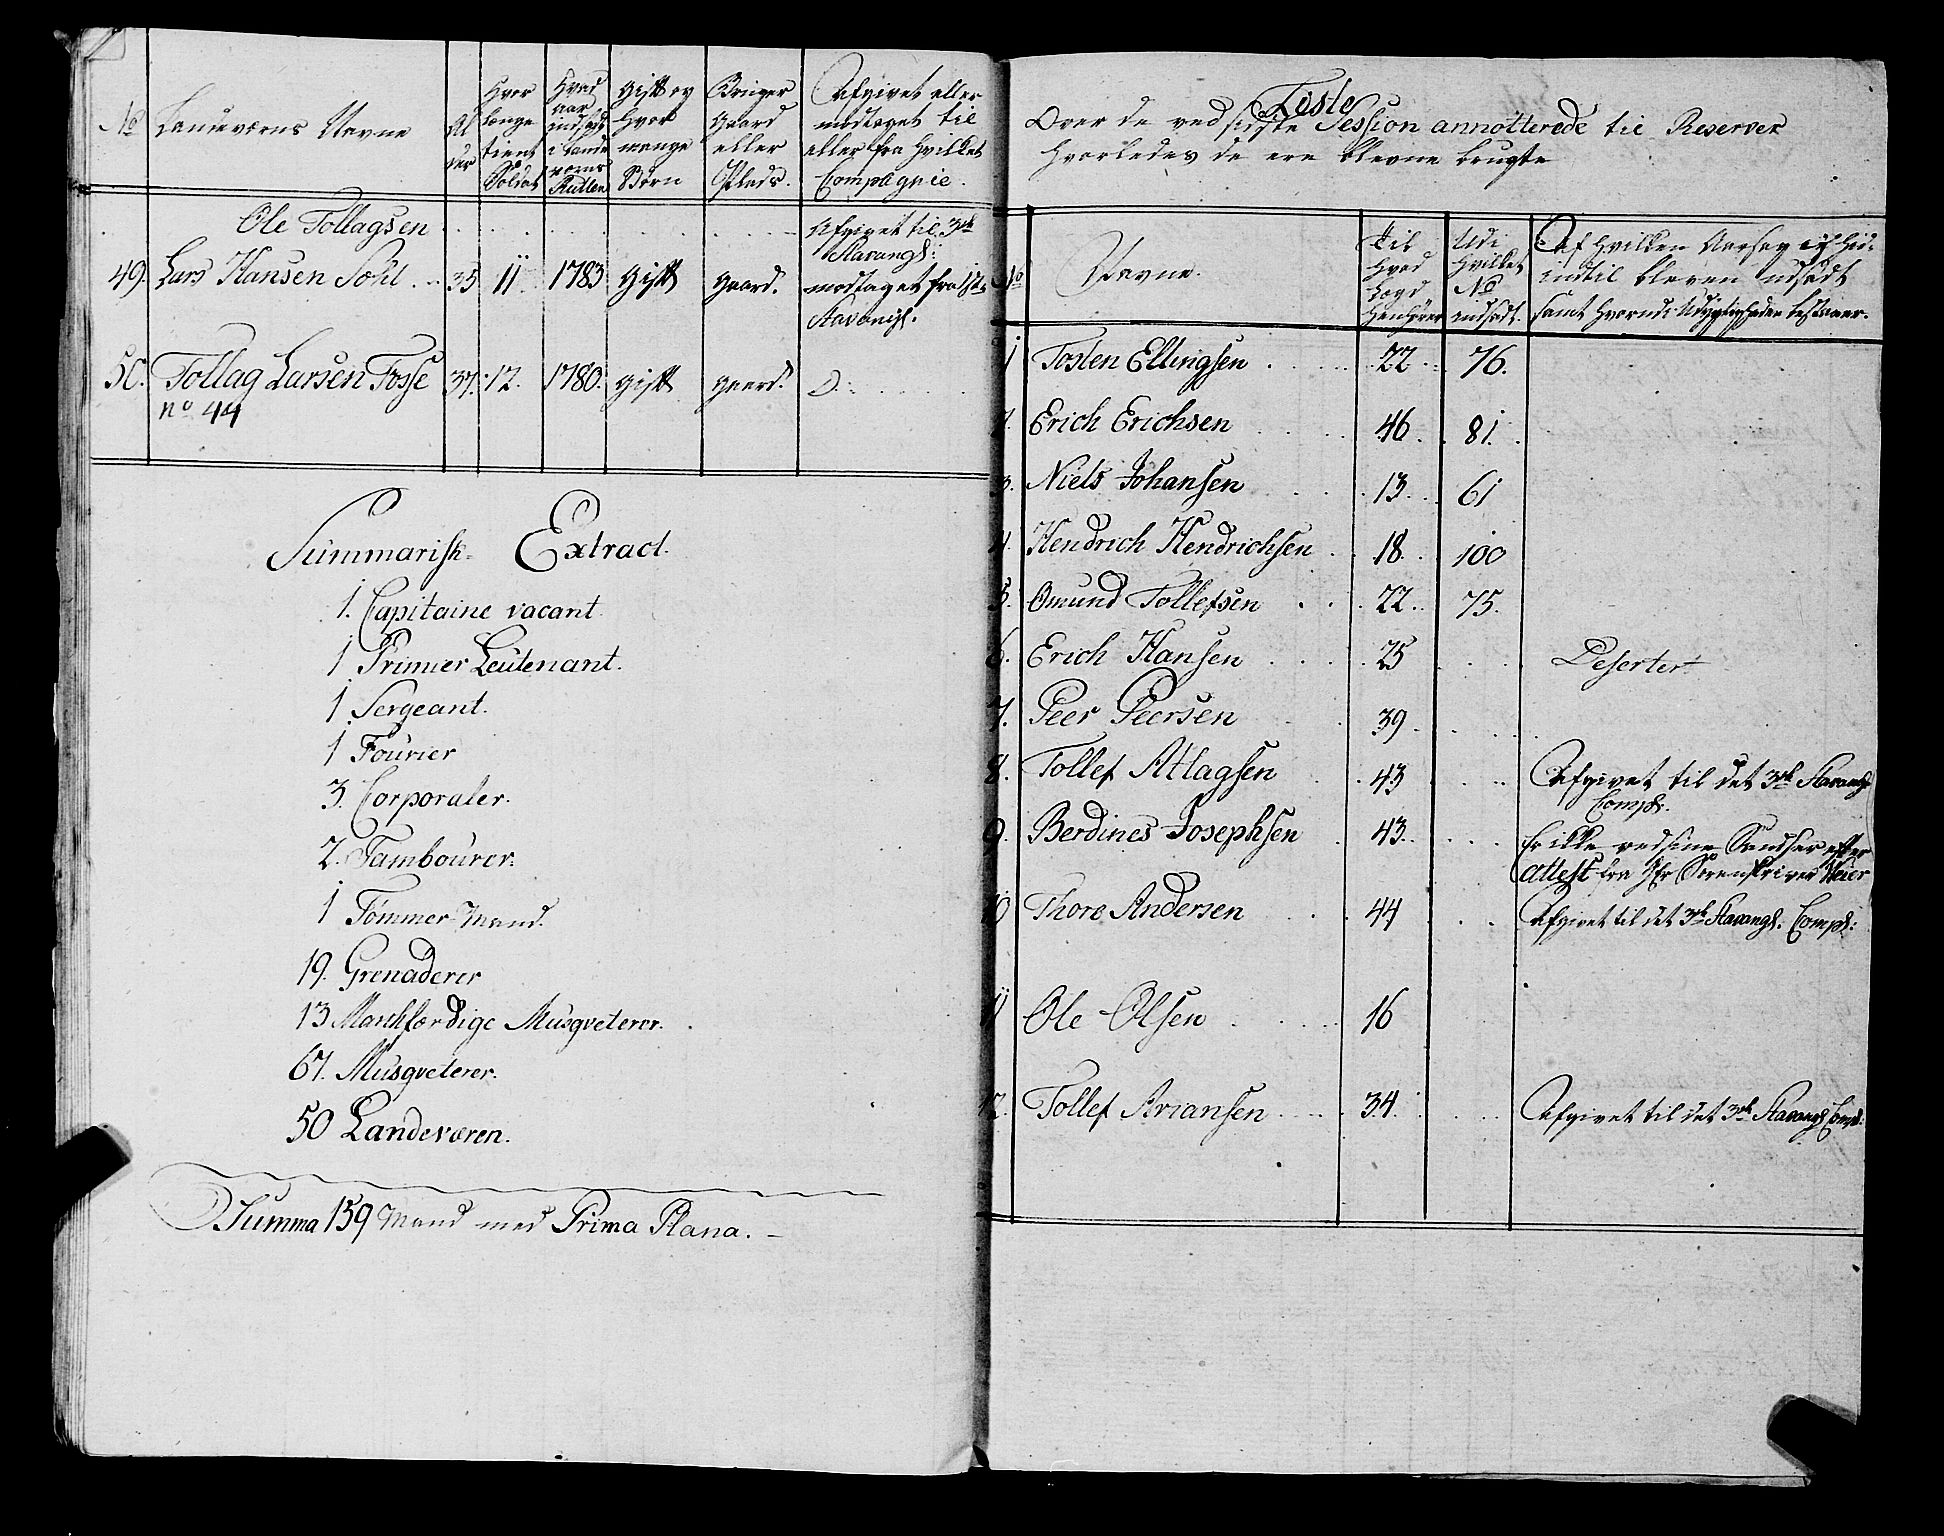 No Landeværns Navne Al der Hvor længe tient Soldat Hvad aar indsadt i Lande værns Rullen gift og hvor mange Børn Bruger gaard eller Plads. Afgivet eller modtaget til eller fra hvilket Compagnie.
Ole Tollagsen Afgivet til 3de Stavangs:
49. Lars Hansen Sohl 35 11 1783 gift gaard. modtaget fra 1ste Stavangs.
50. Tollag Larsen Fosse 37. 12. 1780. gift gaard. D:
no 44
Summarisk Extract.
1. Capitaine vacant
1 Primier Leutenant.
1 Sergeant.
1 Fourier
3. Corporaler.
2. Tambourer.
1 Tømmer Mand.
19. Grenaderer
13 Marchfærdige Musqveterer.
67. Musqveterer.
50 Landeværen.
Summa 159 Mand med Prima Plana.
Liste
Over de ved sidste Session annotterede til Reserver
hvorledes de ere blevne brugte
No Navne. Til hvad Lægd henhører Udi hvilket No indsadt. Af hvilken Aarsag ey hid- indtil bleven indsadt samt hvorudi Udygtigheden bestaaer.
1 Tosten Ellingsen 22 76.
2. Erich Erichsen 46 81.
3. Niels Johansen 13. 61
4. Hendrich Hendrichsen 18. 100
5. Omund Tollefsen 22. 75.
6. Erich Hansen 25 Desertert
7. Peer Peersen 39
8. Tollef Atlagsen 43 Afgivet til det 3de Stavangs Comps.
9. Berdines Josephsen 43. Er ikke ved sine Sandser efter
attest fra Hr Sorenskriver Meier
10 Thore Andersen 44 Afgivet til det 3de Stavangs. Comps:
11 Ole Olsen 16
12. Tollef Ariansen 34. Afgivet til det 3de Stavangs Comp: